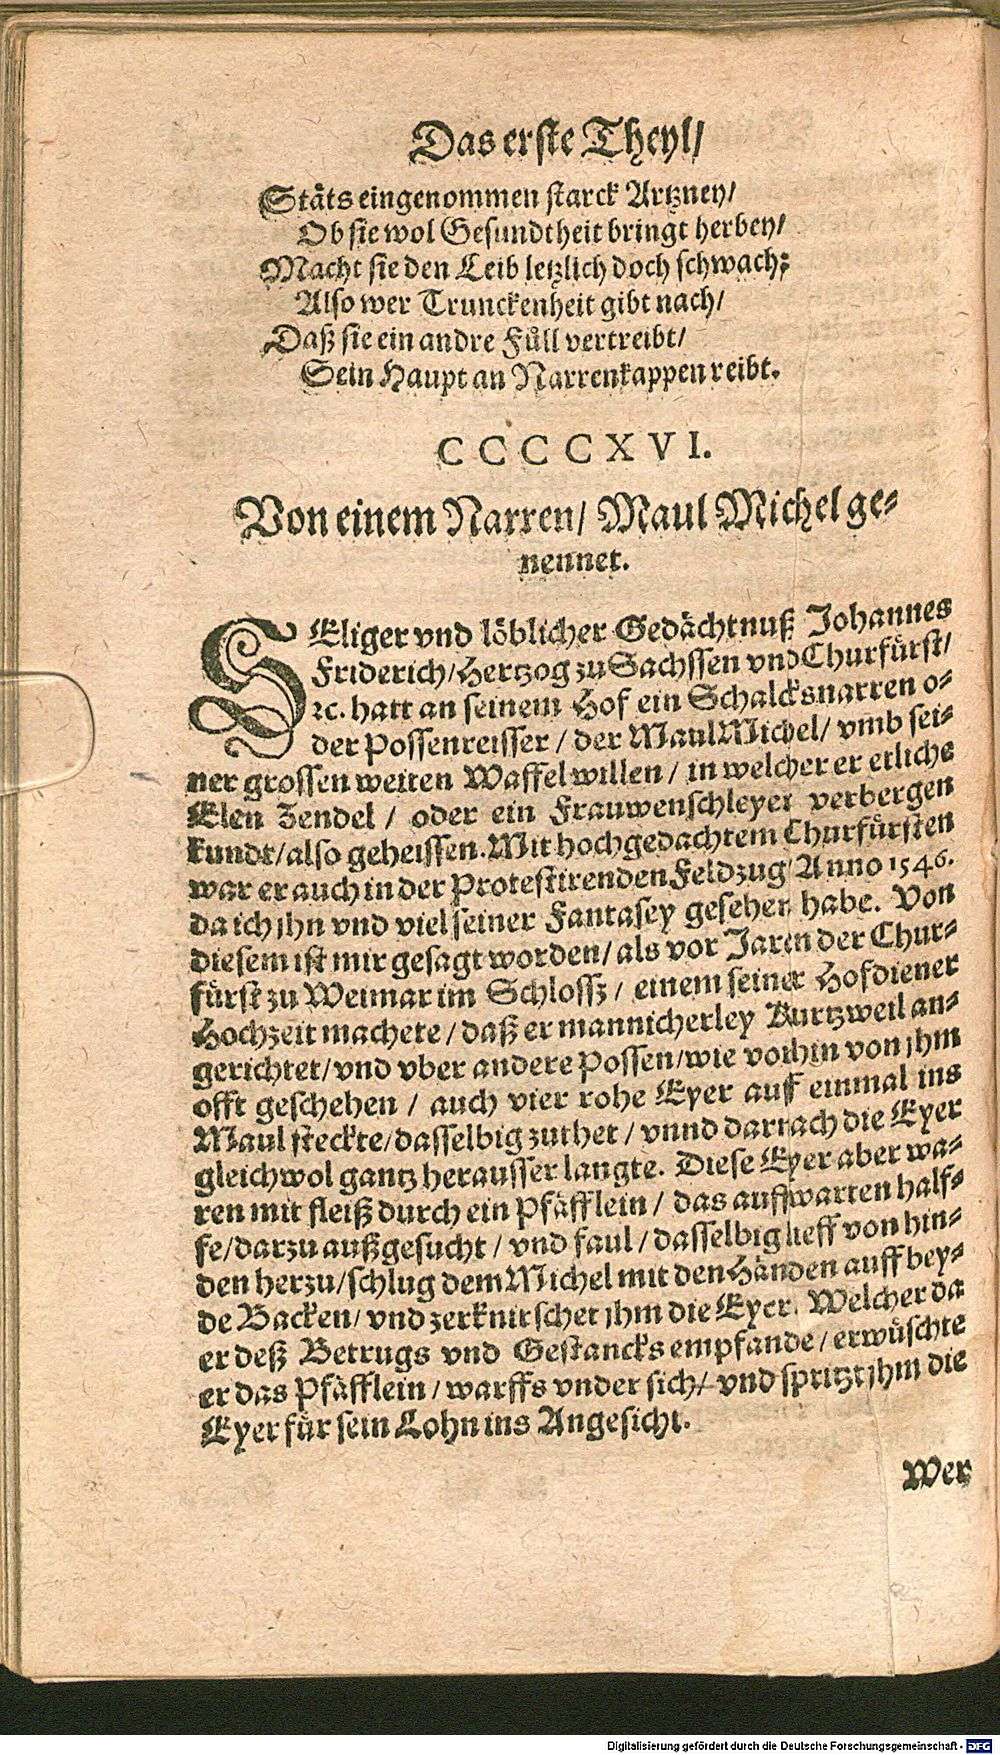 Das erste Theyl/
Stäts eingenommen starck Artzney/
Ob sie wol Gesundtheit bringt herbey/
Macht sie den Leib letzlich doch schwach;
Also wer Trunckenheit gibt nach/
Daß sie ein andre Füll vertreibt/
Sein Haupt an Narrenkappen reibt.
CCCCXVI.
Von einem Narren/ Maul Michel ge-
nennet.
SEliger vnd löblicher Gedächtnuß Johannes
Friderich/Hertzog zu Sachssen vnd Churfürst/
ꝛc. hatt an seinem Hof ein Schalcksnarren o-
der Possenreisser / der Maul Michel/ vmb sei-
ner grossen weiten Waffel willen / in welcher er etliche
Elen Zendel / oder ein Frauwenschleyer verbergen
kundt/also geheissen. Mit hochgedachtem Churfürsten
war er auch in der Protestirenden Feldzug Anno 1546.
da ich jhn vnd viel seiner Fantasey gesehen habe. Von
diesem ist mir gesagt worden/ als vor Jaren der Chur-
fürst zu Weimar im Schlossz / einem seiner Hofdiener
Hochzeit machete / daß er mannicherley Kurtzweil an-
gerichtet/vnd vber andere Possen/wie vorhin von jhm
offt geschehen / auch vier rohe Eyer auff einmal ins
Maul steckte/dasselbig zuthet / vnnd darnach die Eyer
gleichwol gantz herausser langte. Diese Eyer aber wa-
ren mit fleiß durch ein Pfäfflein / das auffwarten half-
fe/darzu außgesucht / vnd faul / dasselbig lieff von hin-
den herzu/schlug dem Michel mit den Händen auff bey-
de Backen/ vnd zerknirschet jhm die Eyer. Welcher da
er deß Betrugs vnd Gestancks empfande / erwüschte
er das Pfäfflein / warffs vnder sich/ vnd spritzt jhm die
Eyer für sein Lohn ins Angesicht.
Wer
Digitalisierung gefördert durch die Deutsche Forschungsgemeinschaft - DFG